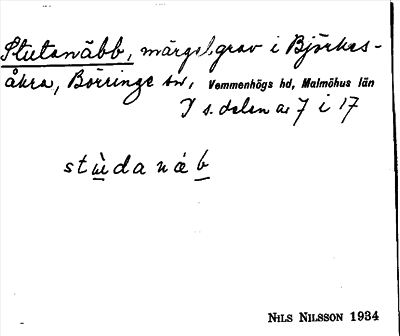 Stutanäbb, märgelgrav i Björkes-
åkra, Börringe sn, Vemmenhögs hd, Malmöhus län
I s. delen av 7 i 17
stùdanáb
NILS NILSSON 1934